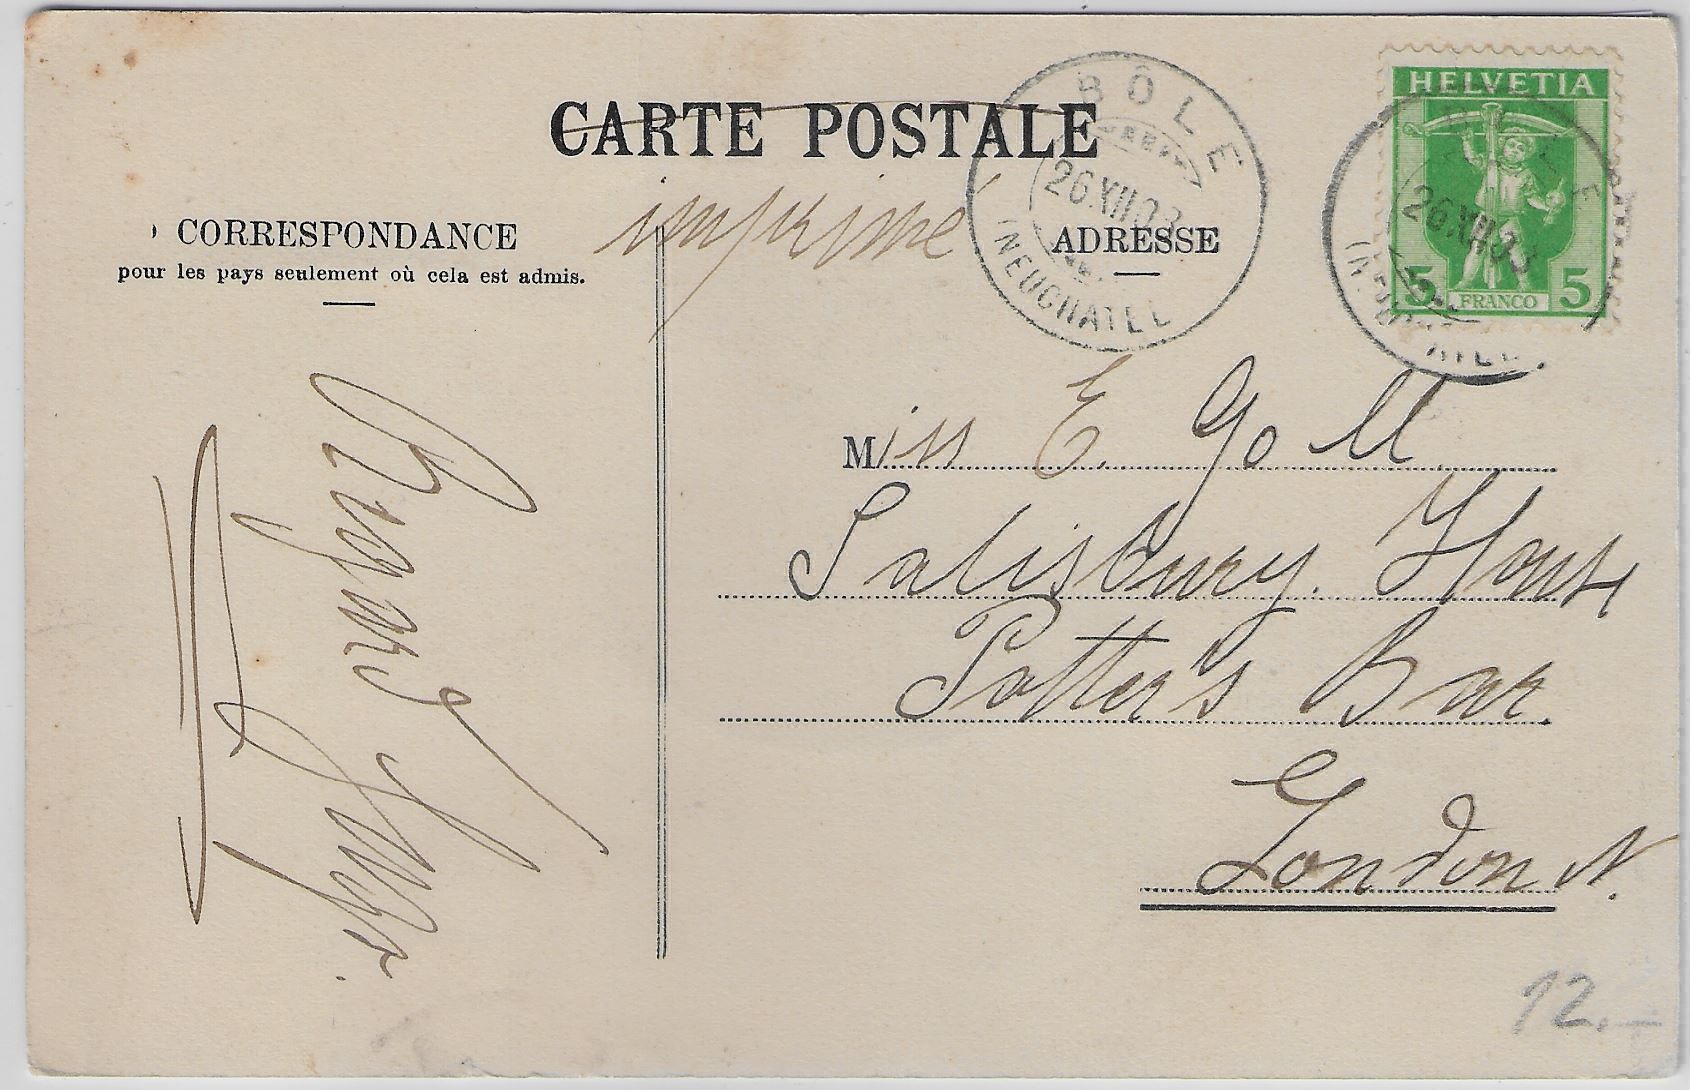 CARTE POSTALE
BÔLE
26.XII.03
(NEUCHATEL
HELVETIA
26.XII.03
5 FRANCO 5
imprimé
CORRESPONDANCE
pour les pays seulement où cela est admis.
ADRESSE
Miss E. Goll
Salisbury. House
Potter's Bar.
London N.
12.—